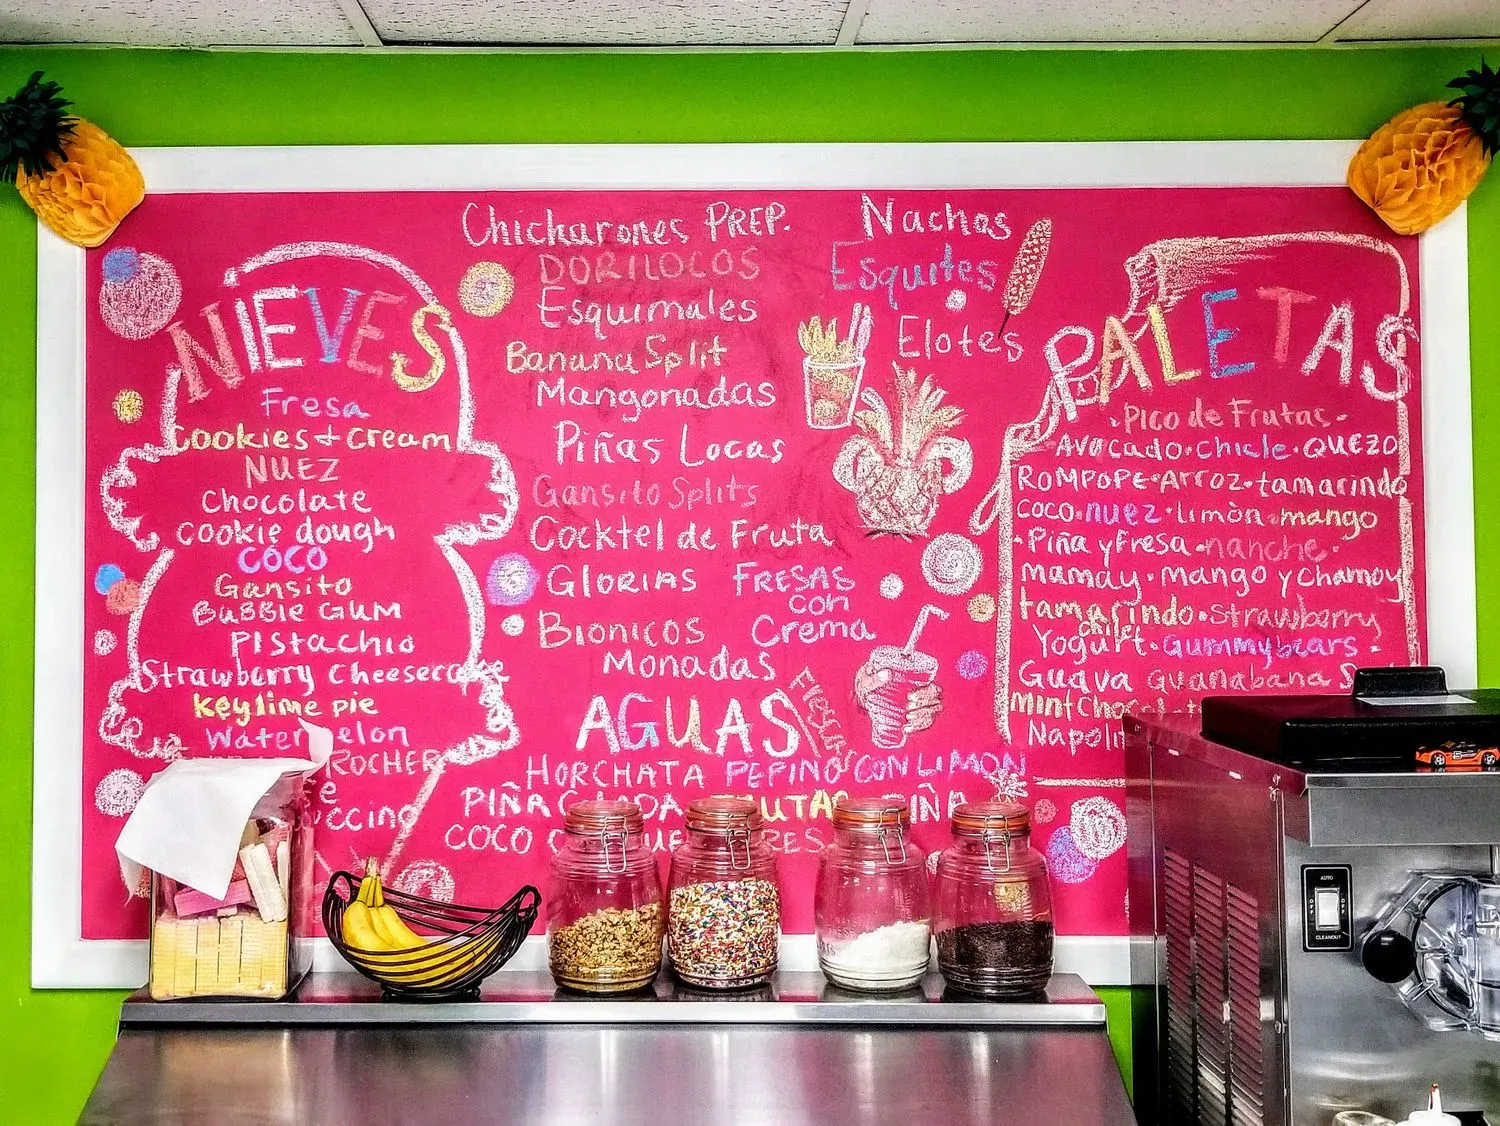 NIEVES
Fresa
Cookies + cream
NUEZ
Chocolate
cookie dough
COCO
Gansito
BUBBLE GUM
PIstachio
Strawberry Cheesecake
Keylime pie
Water elon
ROCHER
ccino
Chicharones PREP.
DORILOCOS
Esquimales
Banana Split
Mangonadas
Piñas Locas
Gansito Splits
Cocktel de Fruta
GLORIAS
FRESAS
con
Crema
BIONICOS
MONADAS
Nachos
Esquites
Elotes
AGUAS
Frescas
HORCHATA PEPINO CON LIMON
PIÑA
COCO
PALETAS
·Pico de Frutas·
·AVOCADO·chicle·QUEZO
ROMPOPE·Arroz·tamarindo
COCO·nuez·limòn·mango
·Piña y fresa·nanche·
mamay·mango y chamoy
tamarindo·strawberry
chile
Yogurt·Gummybears
Guava guanabana
Mint Choc
Napoli
AUTO
OFF
OFF
CLEANOUT